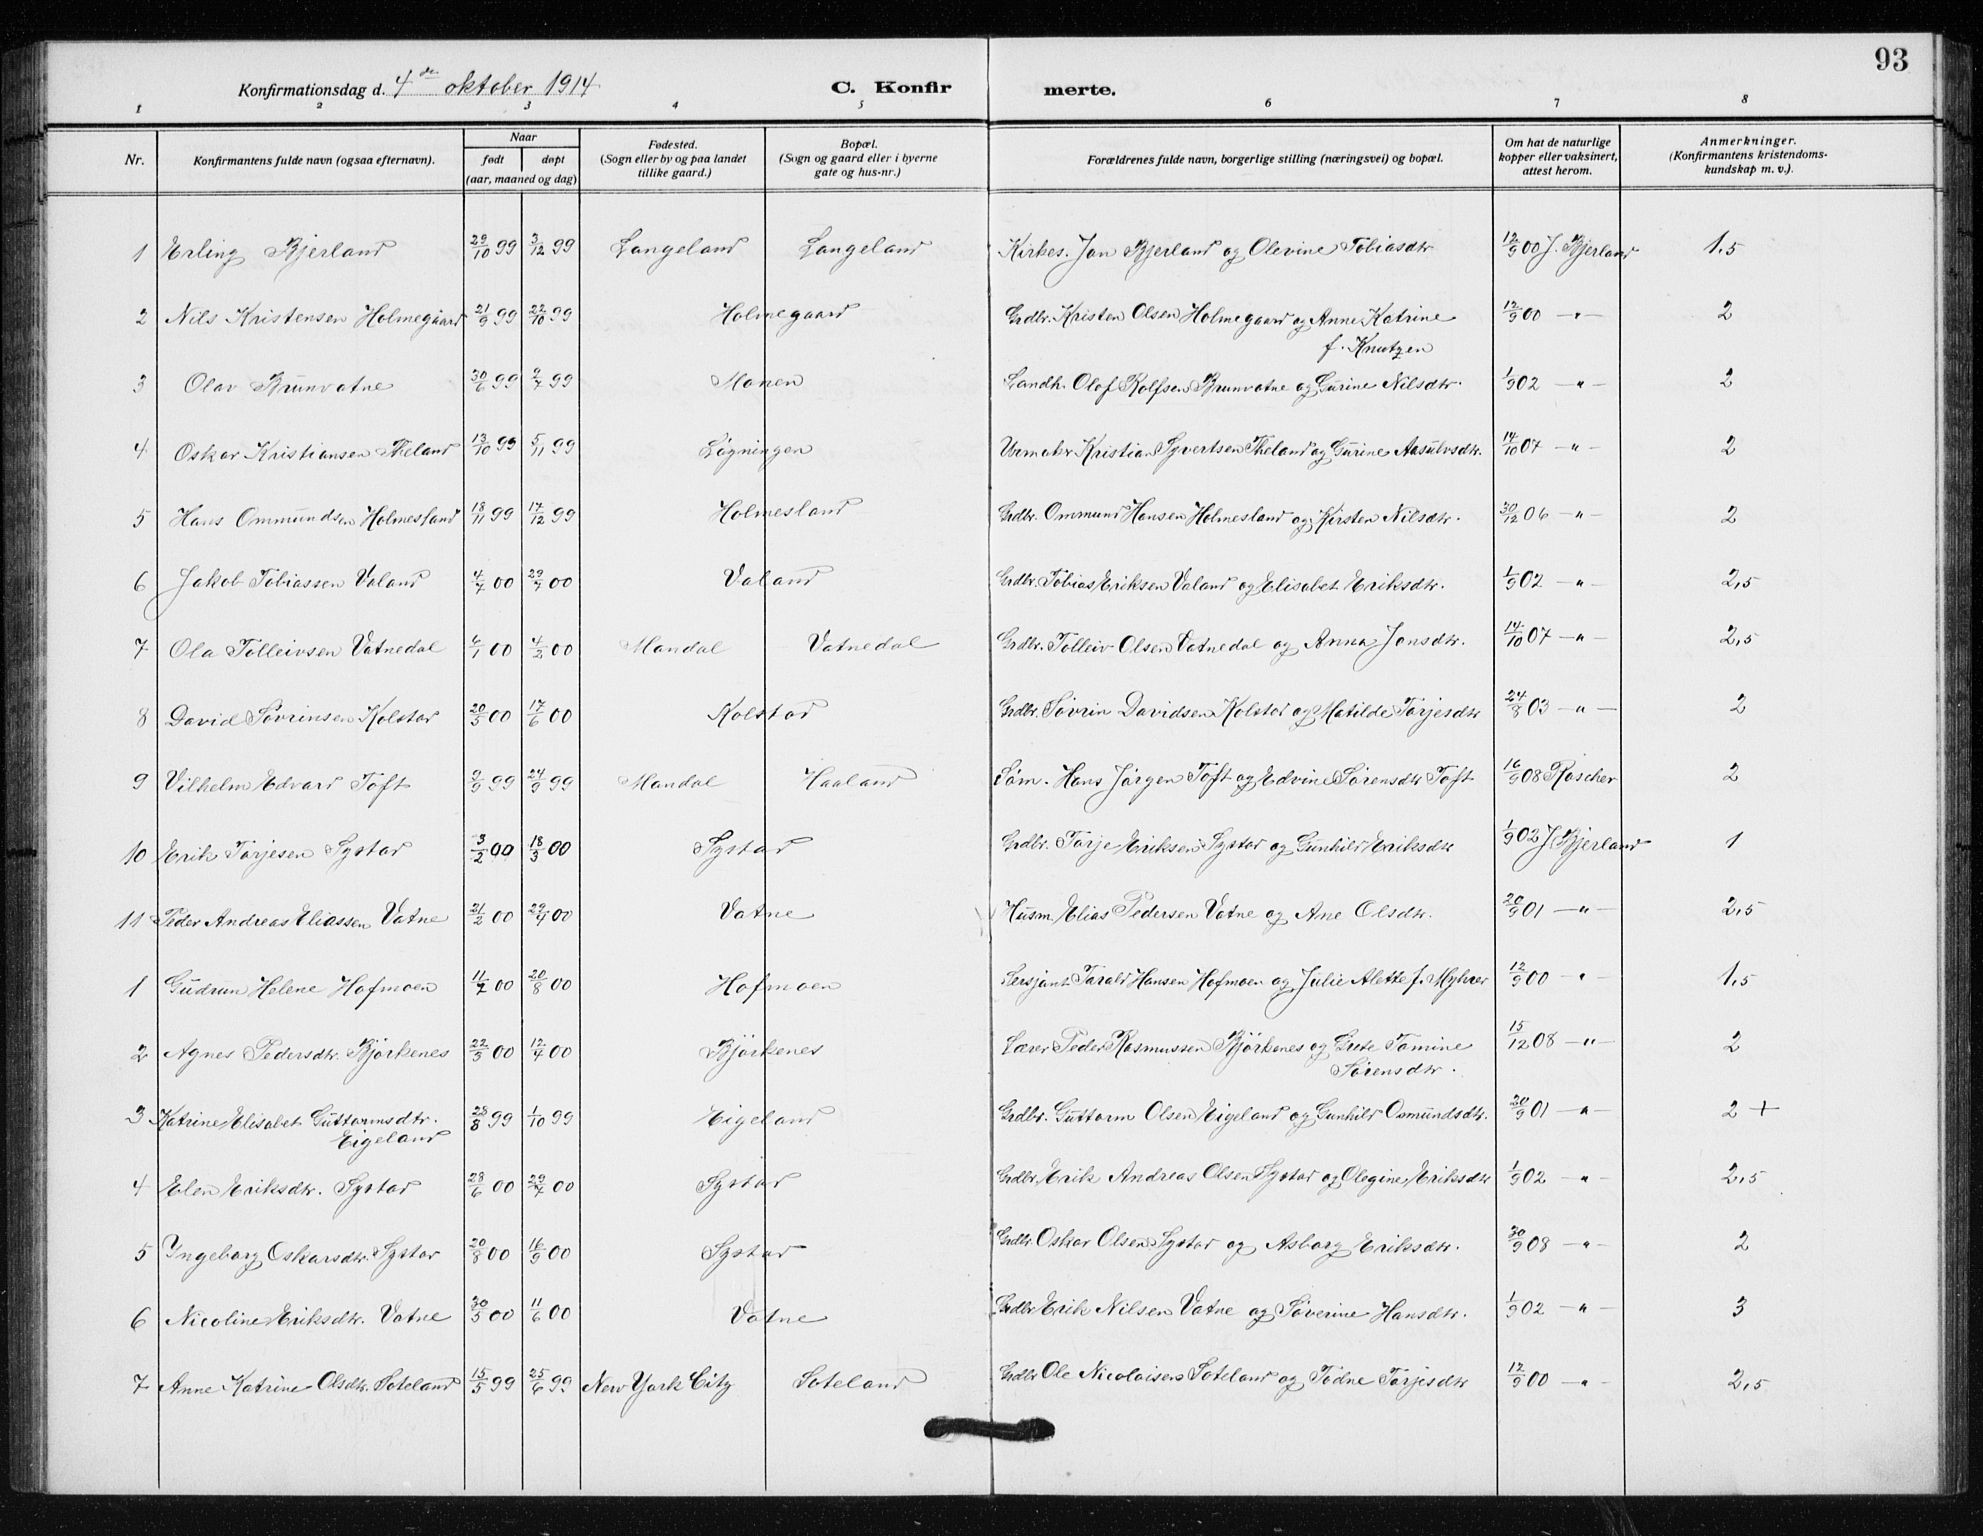 93
Konfirmationsdag d. 4de oktober 1914 C. Konfir merte.
1 2 3 4 5 6 7 8
Nr. Konfirmantens fulde navn (ogsaa efternavn). Naar født døpt (aar, maaned og dag) Fødested. (Sogn eller by og paa landet tillike gaard.) Bopæl. (Sogn og gaard eller i byerne gate og hus-nr.) Forældrenes fulde navn, borgerlige stilling (næringsvei) og bopæl. Om hat de naturlige kopper eller vaksinert, attest herom. Anmerkninger. (Konfirmantens kristendoms-kundskap m. v.).
1 Erling Bjerland 29/10 99 3/12 99 Langeland Langeland Kirkes. Jon Bjerland og Olevine Tobiasdtr 12/9 00 J. Bjerland 1,5
2 Nils Kristensen Holmegaard 21/9 99 22/10 99 Holmegaard Grdbr. Kristen Olsen Holmegaard og Anne Katrine 12/9 00 —"— 2
f. Knutzen
3 Olav Brunvatne 30/6 99 9/7 99 Monen Landh. Olof Rolfsen Brunvatne og Gurine Nilsdtr. 1/9 02 —"— 2
4 Oskar Kristiansen Theland 13/10 99 5/11 99 Løgningen Urmaker Kristian Syvertsen Theland og Gurine Aasulvsdtr. 14/10 07 —"— 2
5 Hans Ommundsen Holmesland 18/11 99 17/12 99 Holmesland Grdbr. Ommund Hansen Holmesland og Kirsten Nilsdtr. 30/12 06 —"— 2
6 Jakob Tobiassen Valand 4/7 00 29/7 00 Valand Grdbr. Tobias Eriksen Valand og Elisabet Eriksdtr. 1/9 02 —"— 2,5
7 Ola Tolleivsen Vatnedal 6/1 00 4/2 00 Mandal Vatnedal Grdbr. Tolleiv Olsen Vatnedal og Anna Jonsdtr. 14/10 07 —"— 2,5
8 David Søvrinsen Kolstar 20/5 00 17/6 00 Kolstad Grdbr. Søvrin Davidsen Kolstor og Matilde Torjesdtr 24/8 03 —"— 2
9 Vilhelm Edvard Toft 9/9 99 24/9 99 Mandal Haaland Søm. Hans Jørgen Toft og Edvine Sørensdtr Toft 16/9 08 Roscher 2
10 Erik Torjesen Systad 3/2 00 18/3 00 Systad Grdbr. Torje Eriksen Systad og Gunhild Eriksdtr 1/9 02 J. Bjerland 1
11 Peder Andreas Eliassen Vatne 21/2 00 29/4 00 Vatne Husm Elias Pedersen Vatne og Ane Olsdtr. 20/9 01 —"— 2,5
1 Gudrun Helene Hofmoen 11/7 00 20/8 00 Hofmoen Sersjant Tarald Hansen Hofmoen og Julie Alette f. Myhrer 12/9 00 " — 1,5
2 Agnes Pedersdtr. Bjørkenes 22/3 00 12/4 00 Bjørkenes Lærer Peder Rasmussen Bjørkenes og Grete Tomine 15/12 08 —"— 2
Sørensdtr.
3 Katrine Elisabet Guttormsdtr. 28/8 99 1/10 99 Eigeland Grdbr. Guttorm Olsen Eigeland og Gunhild Osmundsdtr. 30/9 01 —"— 2 +
Eigeland
4 Elen Eriksdtr. Systad 28/6 00 29/7 00 Systad Grdbr. Erik Andreas Olsen Systad og Olegine Eriksdtr 1/9 02 —"— 2,5
5 Ingeborg Oskarsdtr. Systad 20/8 00 16/9 00 Systad Grdbr. Oskar Olsen Systad og Asborg Eriksdtr. 30/9 08 —"— 2
6 Nicoline Eriksdtr. Vatne 30/5 00 11/6 00 Vatne Grdbr. Erik Nilsen Vatne og Søverine Hansdtr. 1/9 02 —"— 3
7 Anne Katrine Olsdtr. Soteland 15/5 99 25/6 99 New York City Soteland Grdbr. Ole Nicolaisen Soteland og Todne Torjesdtr 12/9 00 —"— 2,5